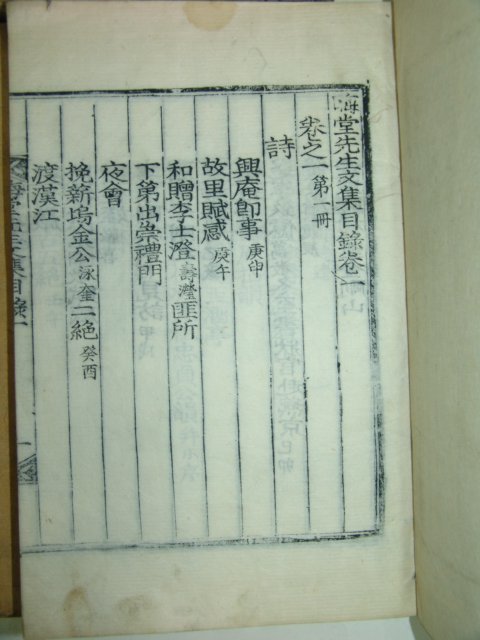 海堂先生文集目錄卷一
卷之一 第一冊
詩
興庵卽事 庚申
故里賦感 庚午
和贈李士澄 壽瀅 匪所
下第出崇禮門
夜會
挽新塢金公 泳奎 二絶 癸酉
渡漢江
文集目錄一